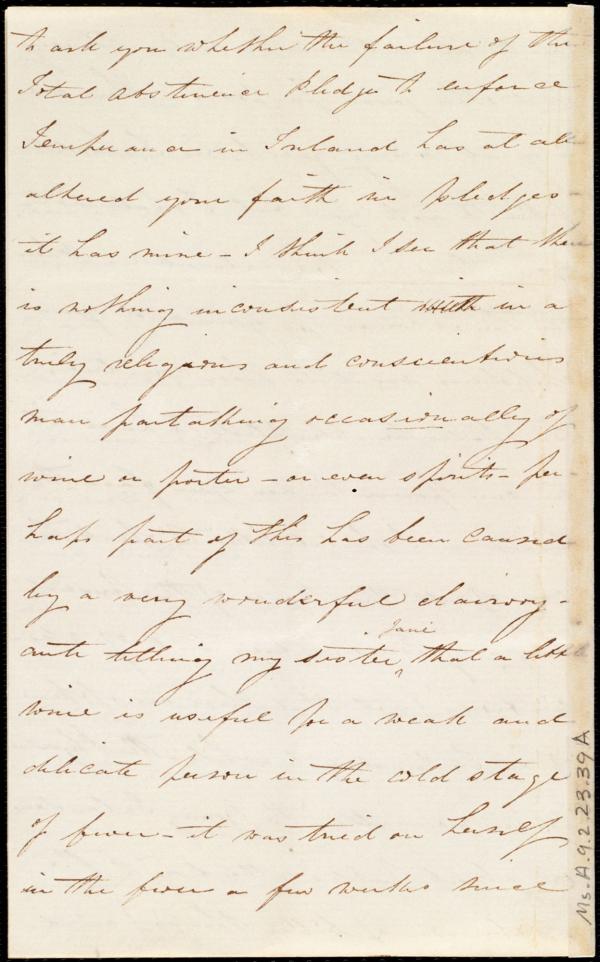 to ask you whether the failure of the
Total Abstinence Pledge to enforce
Temperance in Ireland has at all
altered your faith in pledges -
it has mine - I think I see that there
is nothing inconsistent in a
truly religious and conscientious
man partaking occasionally of
wine or porter - or even spirits - per-
haps part of this has been caused
by a very wonderful clairvoy-
ante telling my sister Jane that a little
wine is useful for a weak and
delicate person in the cold stage
of fever - it was tried on herself
in the fever a few weeks since
Ms.A.9.2.23.39A